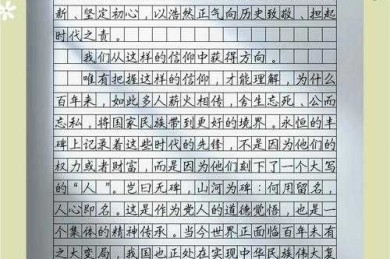 新、坚定初心，以浩然正气向历史致敬、担起
时代之责。
我们从这样的信仰中获得方向。
唯有把握这样的信仰，才能理解，为什么
百年来，如此多人薪火相传，舍生忘死、公而
忘私，将国家民族带到更好的境界。永恒的丰
碑上记录着这些时代的先锋，不是因为他们的
权力或者财富，而是因为他们刻下了一个大写
的“人”。岂曰无碑，山河为碑：何用留名，
人心即名。这是作为党人的道德觉悟，也是一
个集体的精神传承。当今世界正面临百年未有
之大变局，我国也正处在实现中华民族伟大复